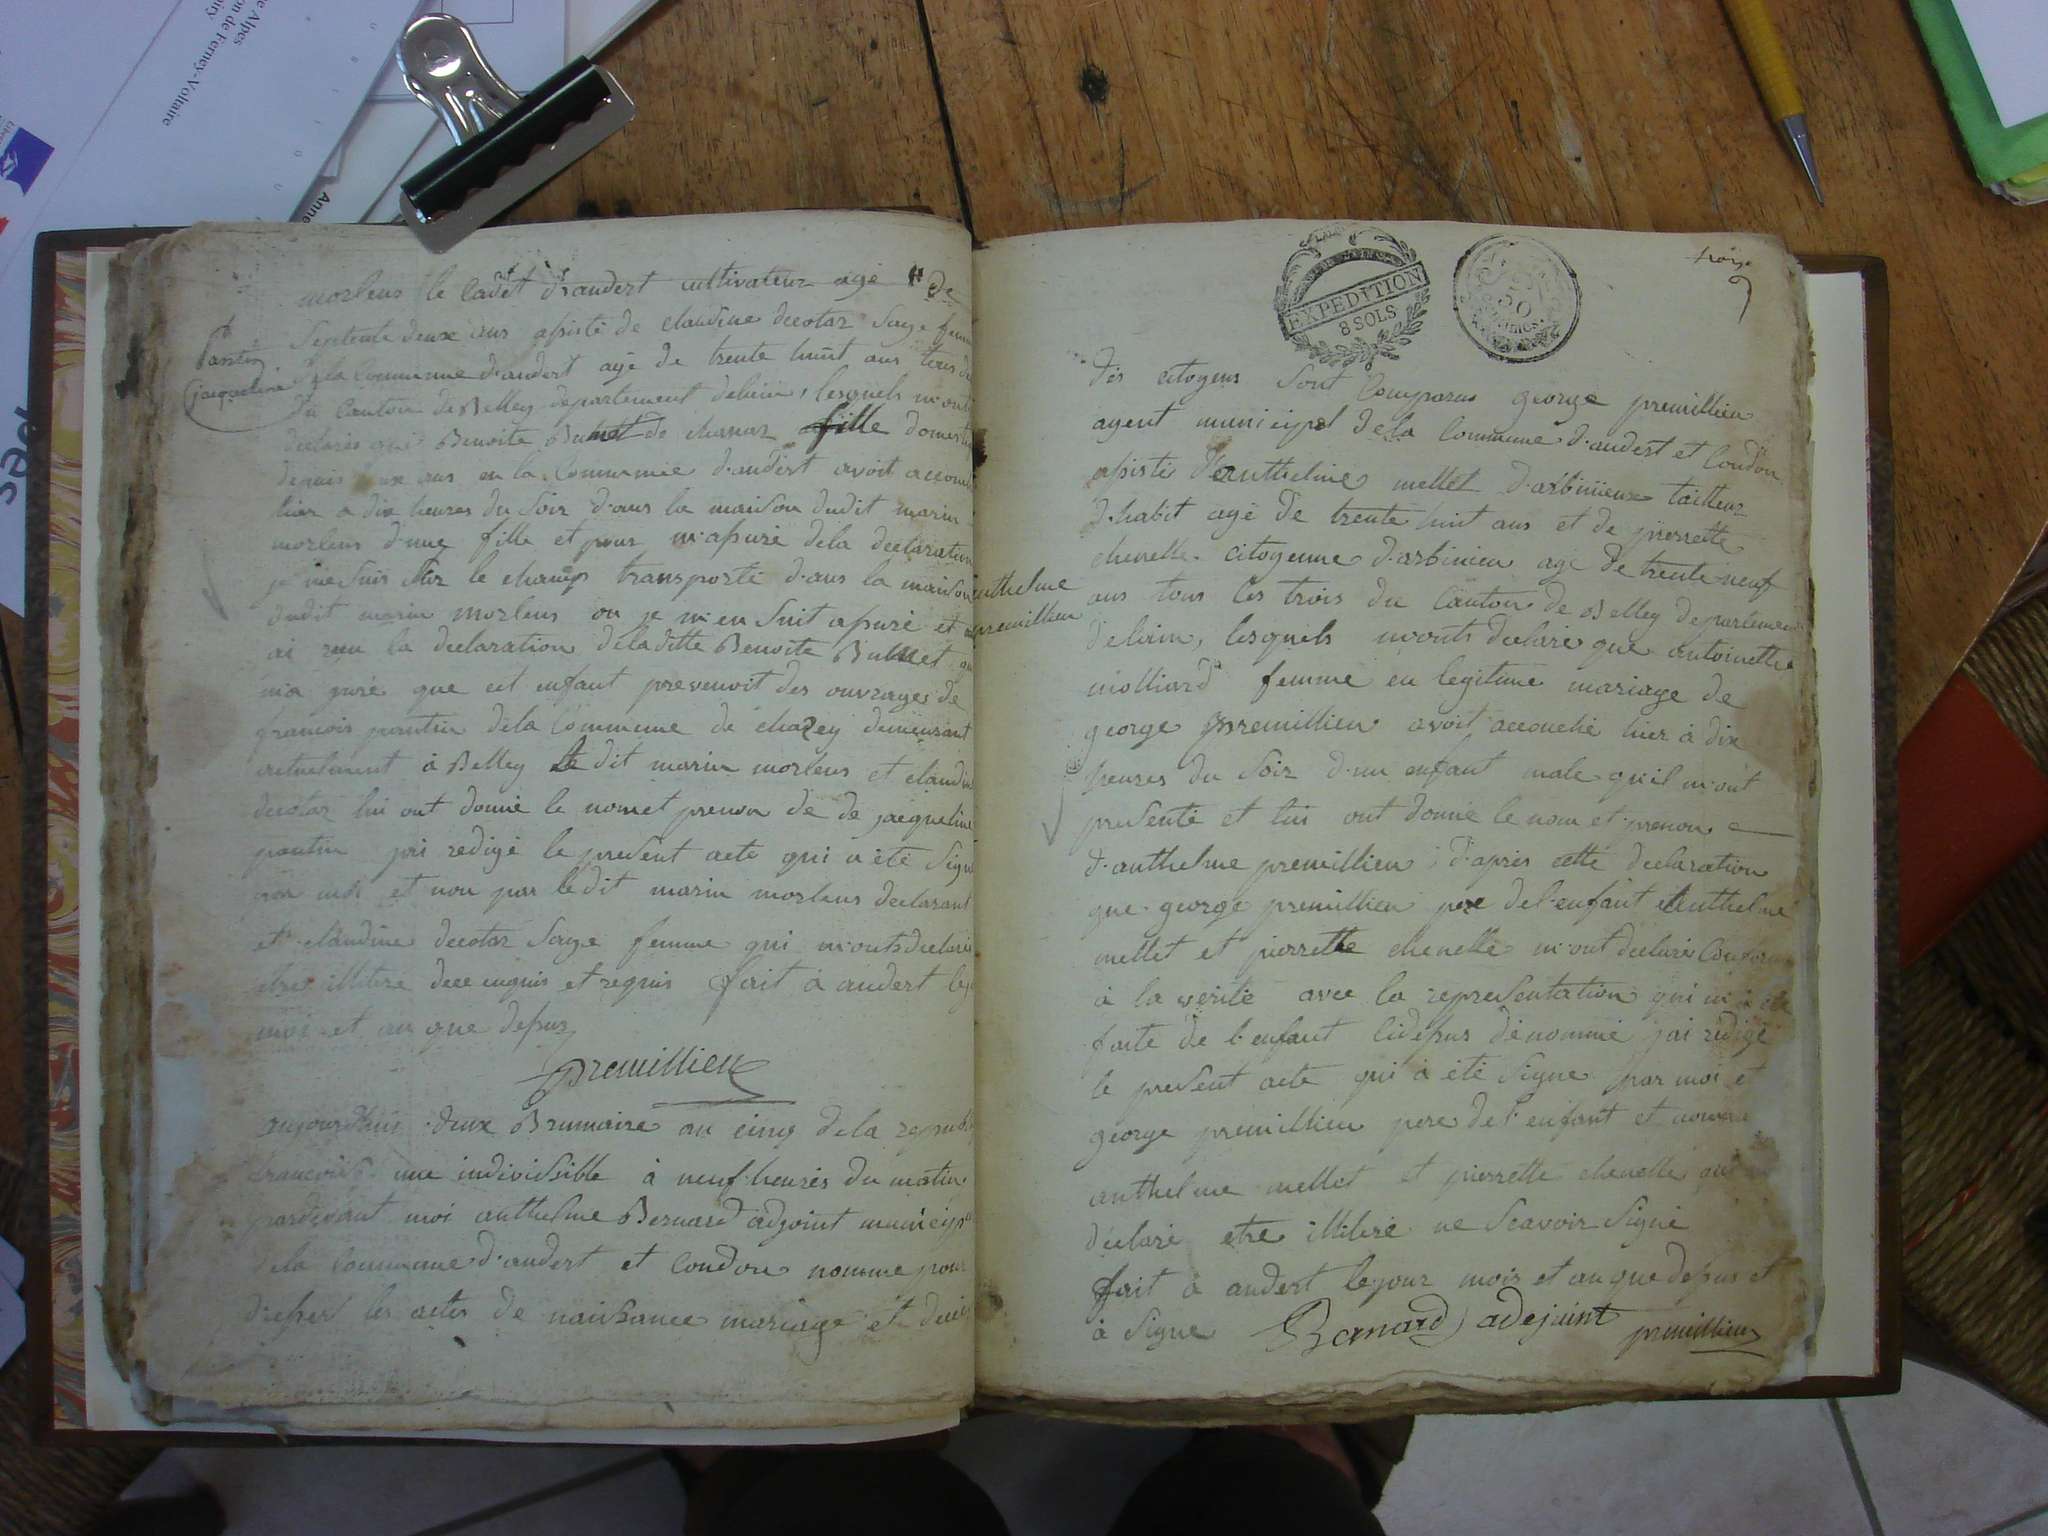 e Alpes
on de Ferney-Voltaire
Anne
morlens le Cadet d'andert cultivateur agé de
Septente deux ans asisté de claudine decotaz Sage femme
Pantin
jacqueline
de la Commune d'andert agé de trente huit ans tous
du Canton de Belley departement delain, lesquels m'ont
declarés que Benoite de chanaz fille domestique
depuis ans en la Commune d'andert avoit accouché
hier a dix heures du Soir d'ans la maison dudit marin
morlens d'une fille et pour m'asuré dela declaration
je me suis Sur le champs transporté d'ans la maison
dudit marin morlens ou je m'en Suit asuré et
ai reçu la declaration deladitte Benoite
m'a juré que cet enfant prevenoit des ouvrages de
francois pantin dela Commune de chazey demeurant
actuelment à Belley le dit marin morlens et claudine
decotaz lui ont donné le nom et prenon de de jacqueline
pantin jai redigé le present acte qui a été Signé
par moi et non par le dit marin morlens declarant
et claudine decotaz Sage femme qui m'onts declarés
etre illitiré dece enquis et requis fait à andert le jour
moi et an que desus
premillieu
aujourdhui deux Brumaire an cinq dela republique
francoise une indivisible à neuf heures du matin
pardevant moi anthelme Bernard adjoint municipal
dela Commune d'andert et Condon nommé pour
dresser les actes de naissance mariage et decès
EXPEDITION
8 SOLS
treize
des citoyens sont Comparus george premillieu
agent municipal dela Commune d'andert et Condon
asisté d'anthelme mellet d'arbinieux tailleur
d'habit agé de trente huit ans et de pierrette
chenelle citoyenne d'arbinieu agé de trente neuf
anthelme
premillieu
ans tous les trois du Canton de Belley departement
delain, lesquels m'onts declaré que antoinette
molliard femme en legitime mariage de
george premillieu avoit accouché hier à dix
heures du Soir d'un enfant male qu'il m'ont
presenté et lui ont donné le nom et prenon
d'anthelme premillieu d'après cette declaration
que george premillieu pere del'enfant anthelme
mellet et pierrette chenelle m'ont declaré Conforme
à la verité avec la representation qui m'a été
faite de l'enfant cidesus denommé jai redigé
le present acte qui à été Signé par moi et
george premillieu pere del'enfant et non
anthelme mellet et pierrette chenelle qui
declaré etre illitiré ne Scavoir Signé
fait a andert lejour mois et an que desus et
à signe Bernard adejoint premillieu